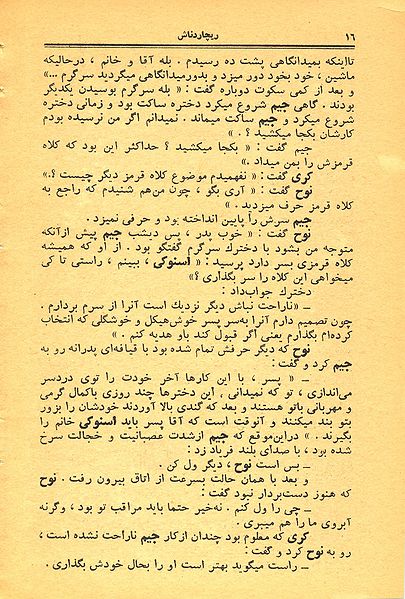 ۱۶ ریچاردناش
تااینکه بمیدانگاهی پشت ده رسیدم . بله آقا و خانم ، درحالیکه
ماشین ، خود بخود دور میزد و بدورمیدانگاهی میگردید سرگرم ...»
و بعد از کمی سکوت دوباره گفت : « بله سرگرم بوسیدن یکدیگر
بودند . گاهی جیم شروع میکرد دختره ساکت بود و زمانی دختره
شروع میکرد و جیم ساکت میماند . نمیدانم اگر من نرسیده بودم
کارشان بکجا میکشید ؟ . »
جیم گفت : « بکجا میکشید ؟ حداکثر این بود که کلاه
قرمزش را بمن میداد .»
کری گفت : « نفهمیدم موضوع کلاه قرمز دیگر چیست ؟.»
نوح گفت : « آری بگو ، چون من‌هم شنیدم که راجع به
کلاه قرمز حرف میزدید . »
جیم سرش را پایین انداخته بود و حرفی نمیزد .
نوح گفت : « خوب پدر ، پس دیشب جیم پیش ازآنکه
متوجه من بشود با دخترك سرگرم گفتگو بود . از او که همیشه
کلاه قرمزی بسر دارد پرسید : « اسنوکی ، ببینم ، راستی تا کی
میخواهی این کلاه را سر بگذاری ؟»
دخترك جواب‌داد :
ــ «ناراحت نباش دیگر نزدیك است آنرا از سرم بردارم .
چون تصمیم دارم آنرا به‌سر پسر خوش‌هیکل و خوشگلی که انتخاب
کرده‌ام بگذارم یعنی اگر قبول کند باو هدیه کنم . »
نوح که دیگر حرفش تمام شده بود با قیافه‌ای پدرانه رو به
جیم کرد و گفت :
ــ « پسر ، با این کارها آخر خودت را توی دردسر
می‌اندازی ، تو که نمیدانی ، این دخترها چند روزی باکمال گرمی
و مهربانی باتو هستند و بعد که گندی بالا آوردند خودشان را بزور
بتو بند میکنند و آنوقت است که آقا پسر باید اسنوکی خانم را
بگیرند . » دراین‌موقع که جیم ازشدت عصبانیت و خجالت سرخ
شده بود ، با صدای بلند فریاد زد :
ــ بس است نوح ، دیگر ول کن .
و بعد با همان حالت بسرعت از اتاق بیرون رفت . نوح
که هنوز دست‌بردار نبود گفت :
ــ چی را ول کنم . نه‌خیر حتما باید مراقب تو بود ، وگرنه
آبروی ما را هم میبری .
کری که معلوم بود چندان ازکار جیم ناراحت نشده است ،
رو به نوح کرد و گفت :
ــ راست میگوید بهتر است او را بحال خودش بگذاری .